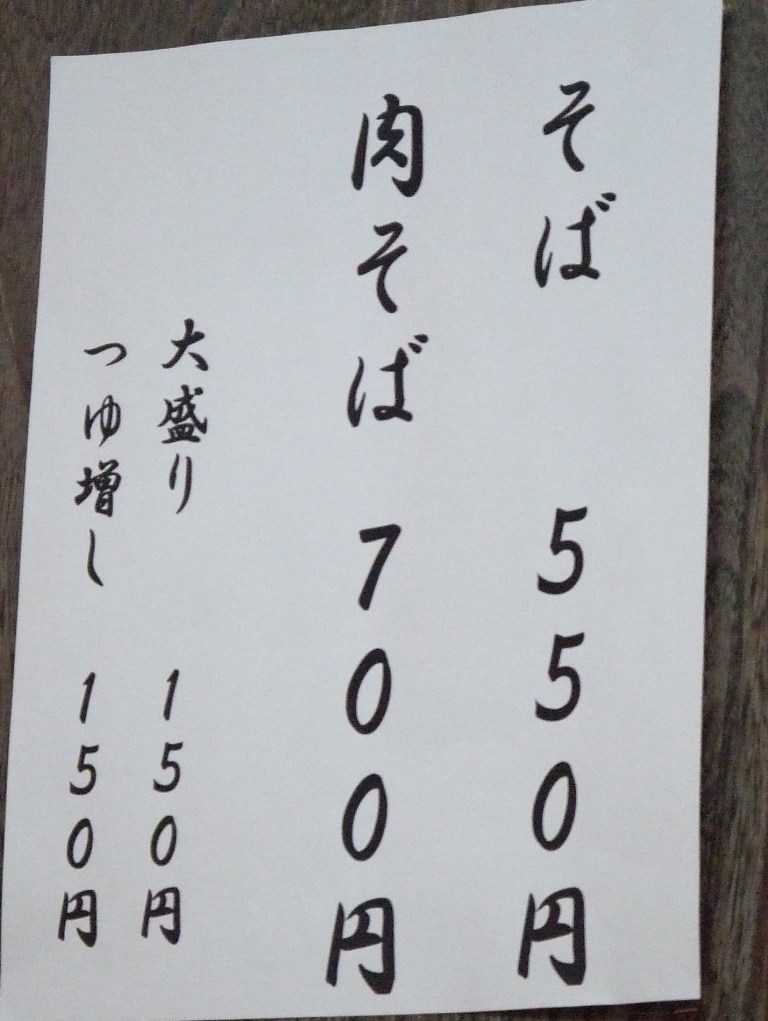 そば 550円
肉そば 700円
大盛り 150円
つゆ増し 150円